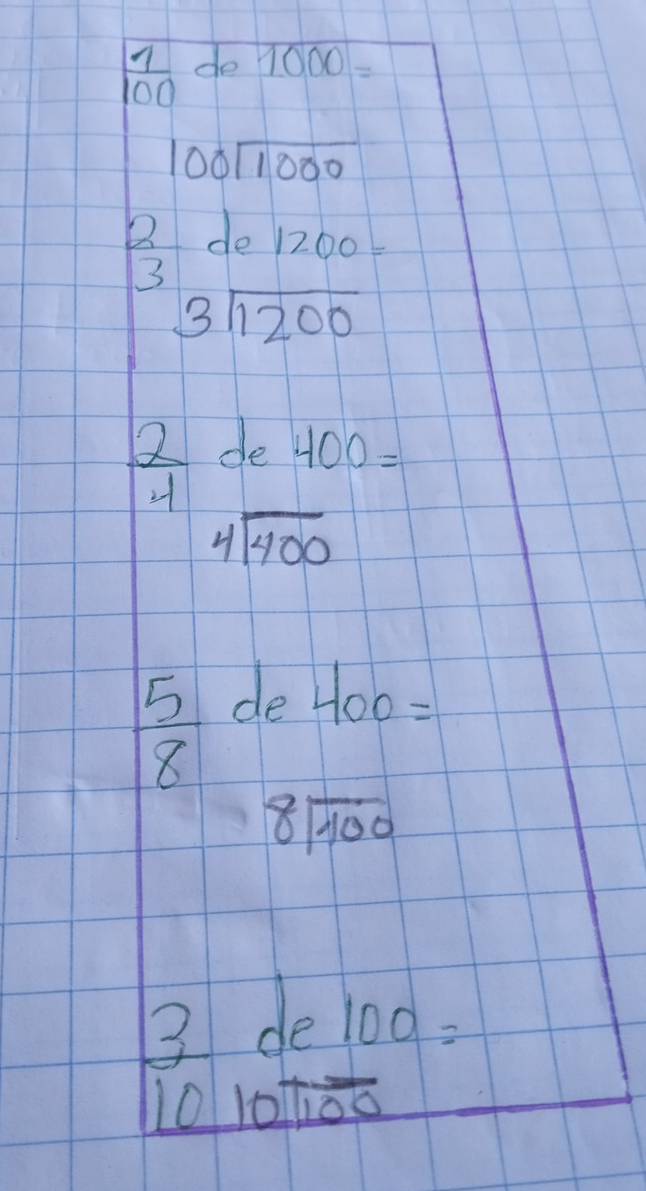 1/100 de 1000=
100√1000
2/3 de 1200=
3√1200
2/4 de 400=
4√400
5/8 de 400=
8√400
3/10 de 100=
10√100